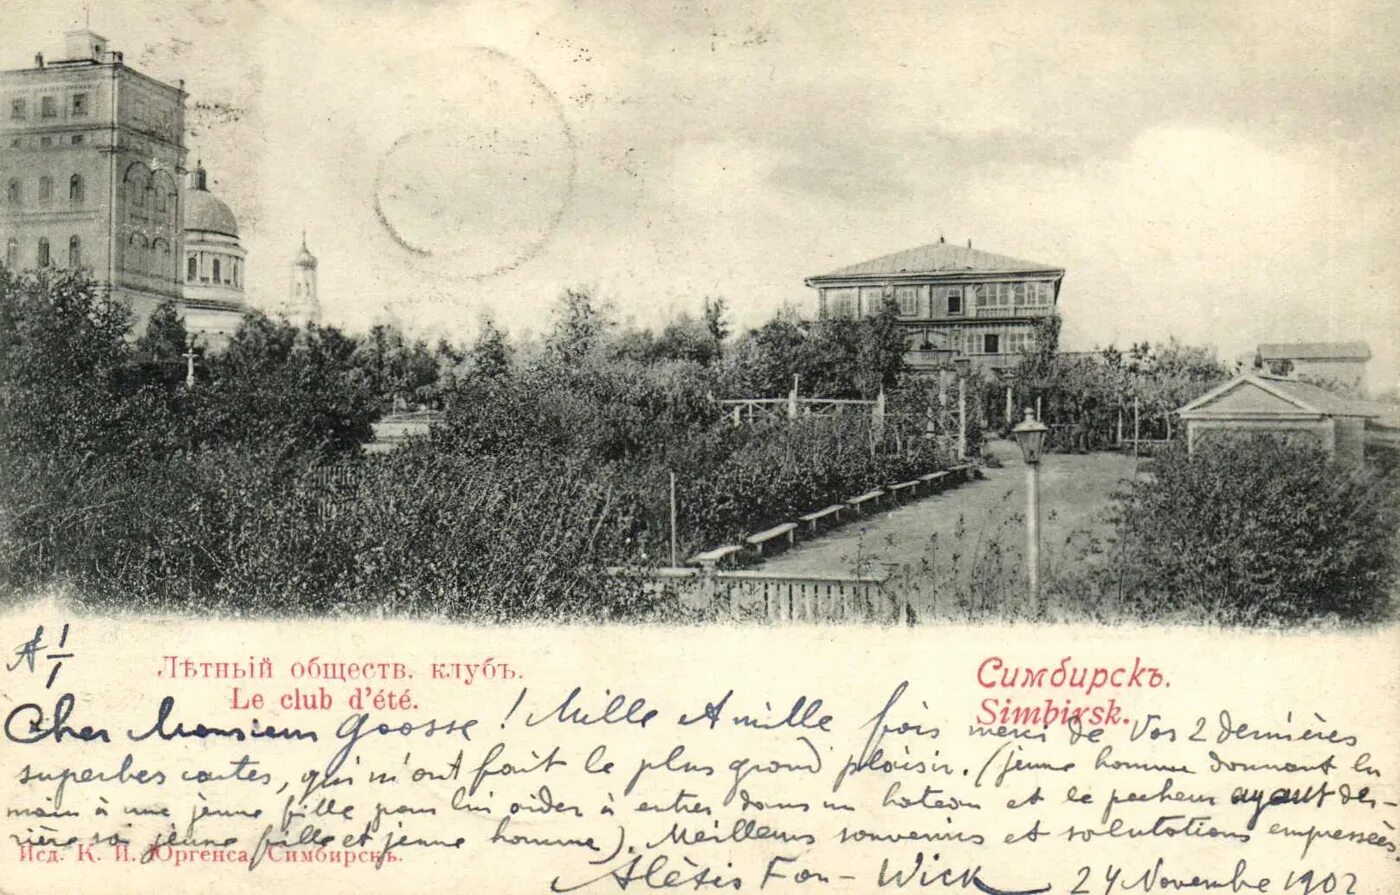 A 1/1
Лѣтный обществ. клубъ.
Le club d'été.
Симбирскъ.
Simbirsk.
Cher Monsieur Goosse! Mille et mille fois merci de Vos 2 dernières
superbes cartes, qui m'ont fait le plus grand plaisir. (jeune homme donnant la
main à une jeune fille pour lui aider à entrer dans un bateau et le pecheur ayant der-
rière soi jeune fille et jeune homme). Meilleurs souvenirs et salutations empressées
Изд. К. И. Юргенса, Симбирскъ.
Alexis Fon-Wick 24 Novembre 1902